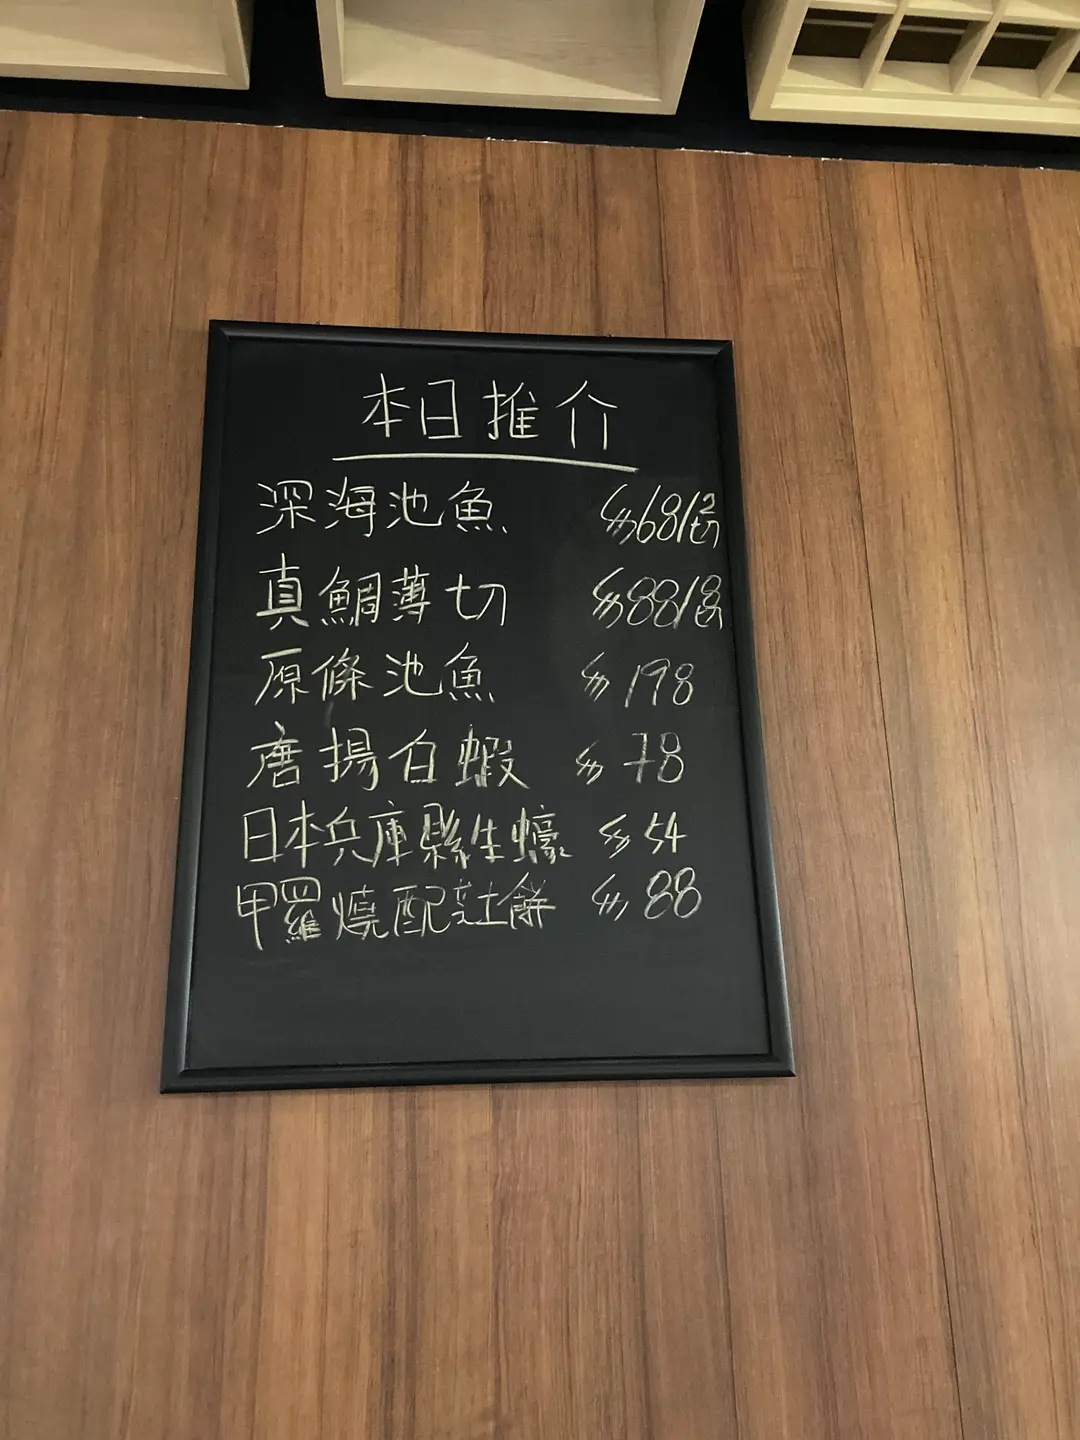 本日推介
深海池魚 $68/2切
真鯛薄切 $88/8切
原條池魚 $198
唐揚白蝦 $78
日本兵庫縣生蠔 $54
甲羅燒配芝士餅 $88